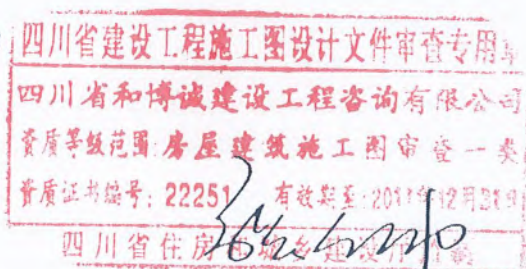 四川省建设工程施工图设计文件审查专用章
四川省和博诚建设工程咨询有限公司
资质等级范围:房屋建筑施工图审查一类
资质证书编号:22251 有效期至:201 年12月31日
四川省住房和城乡建设厅